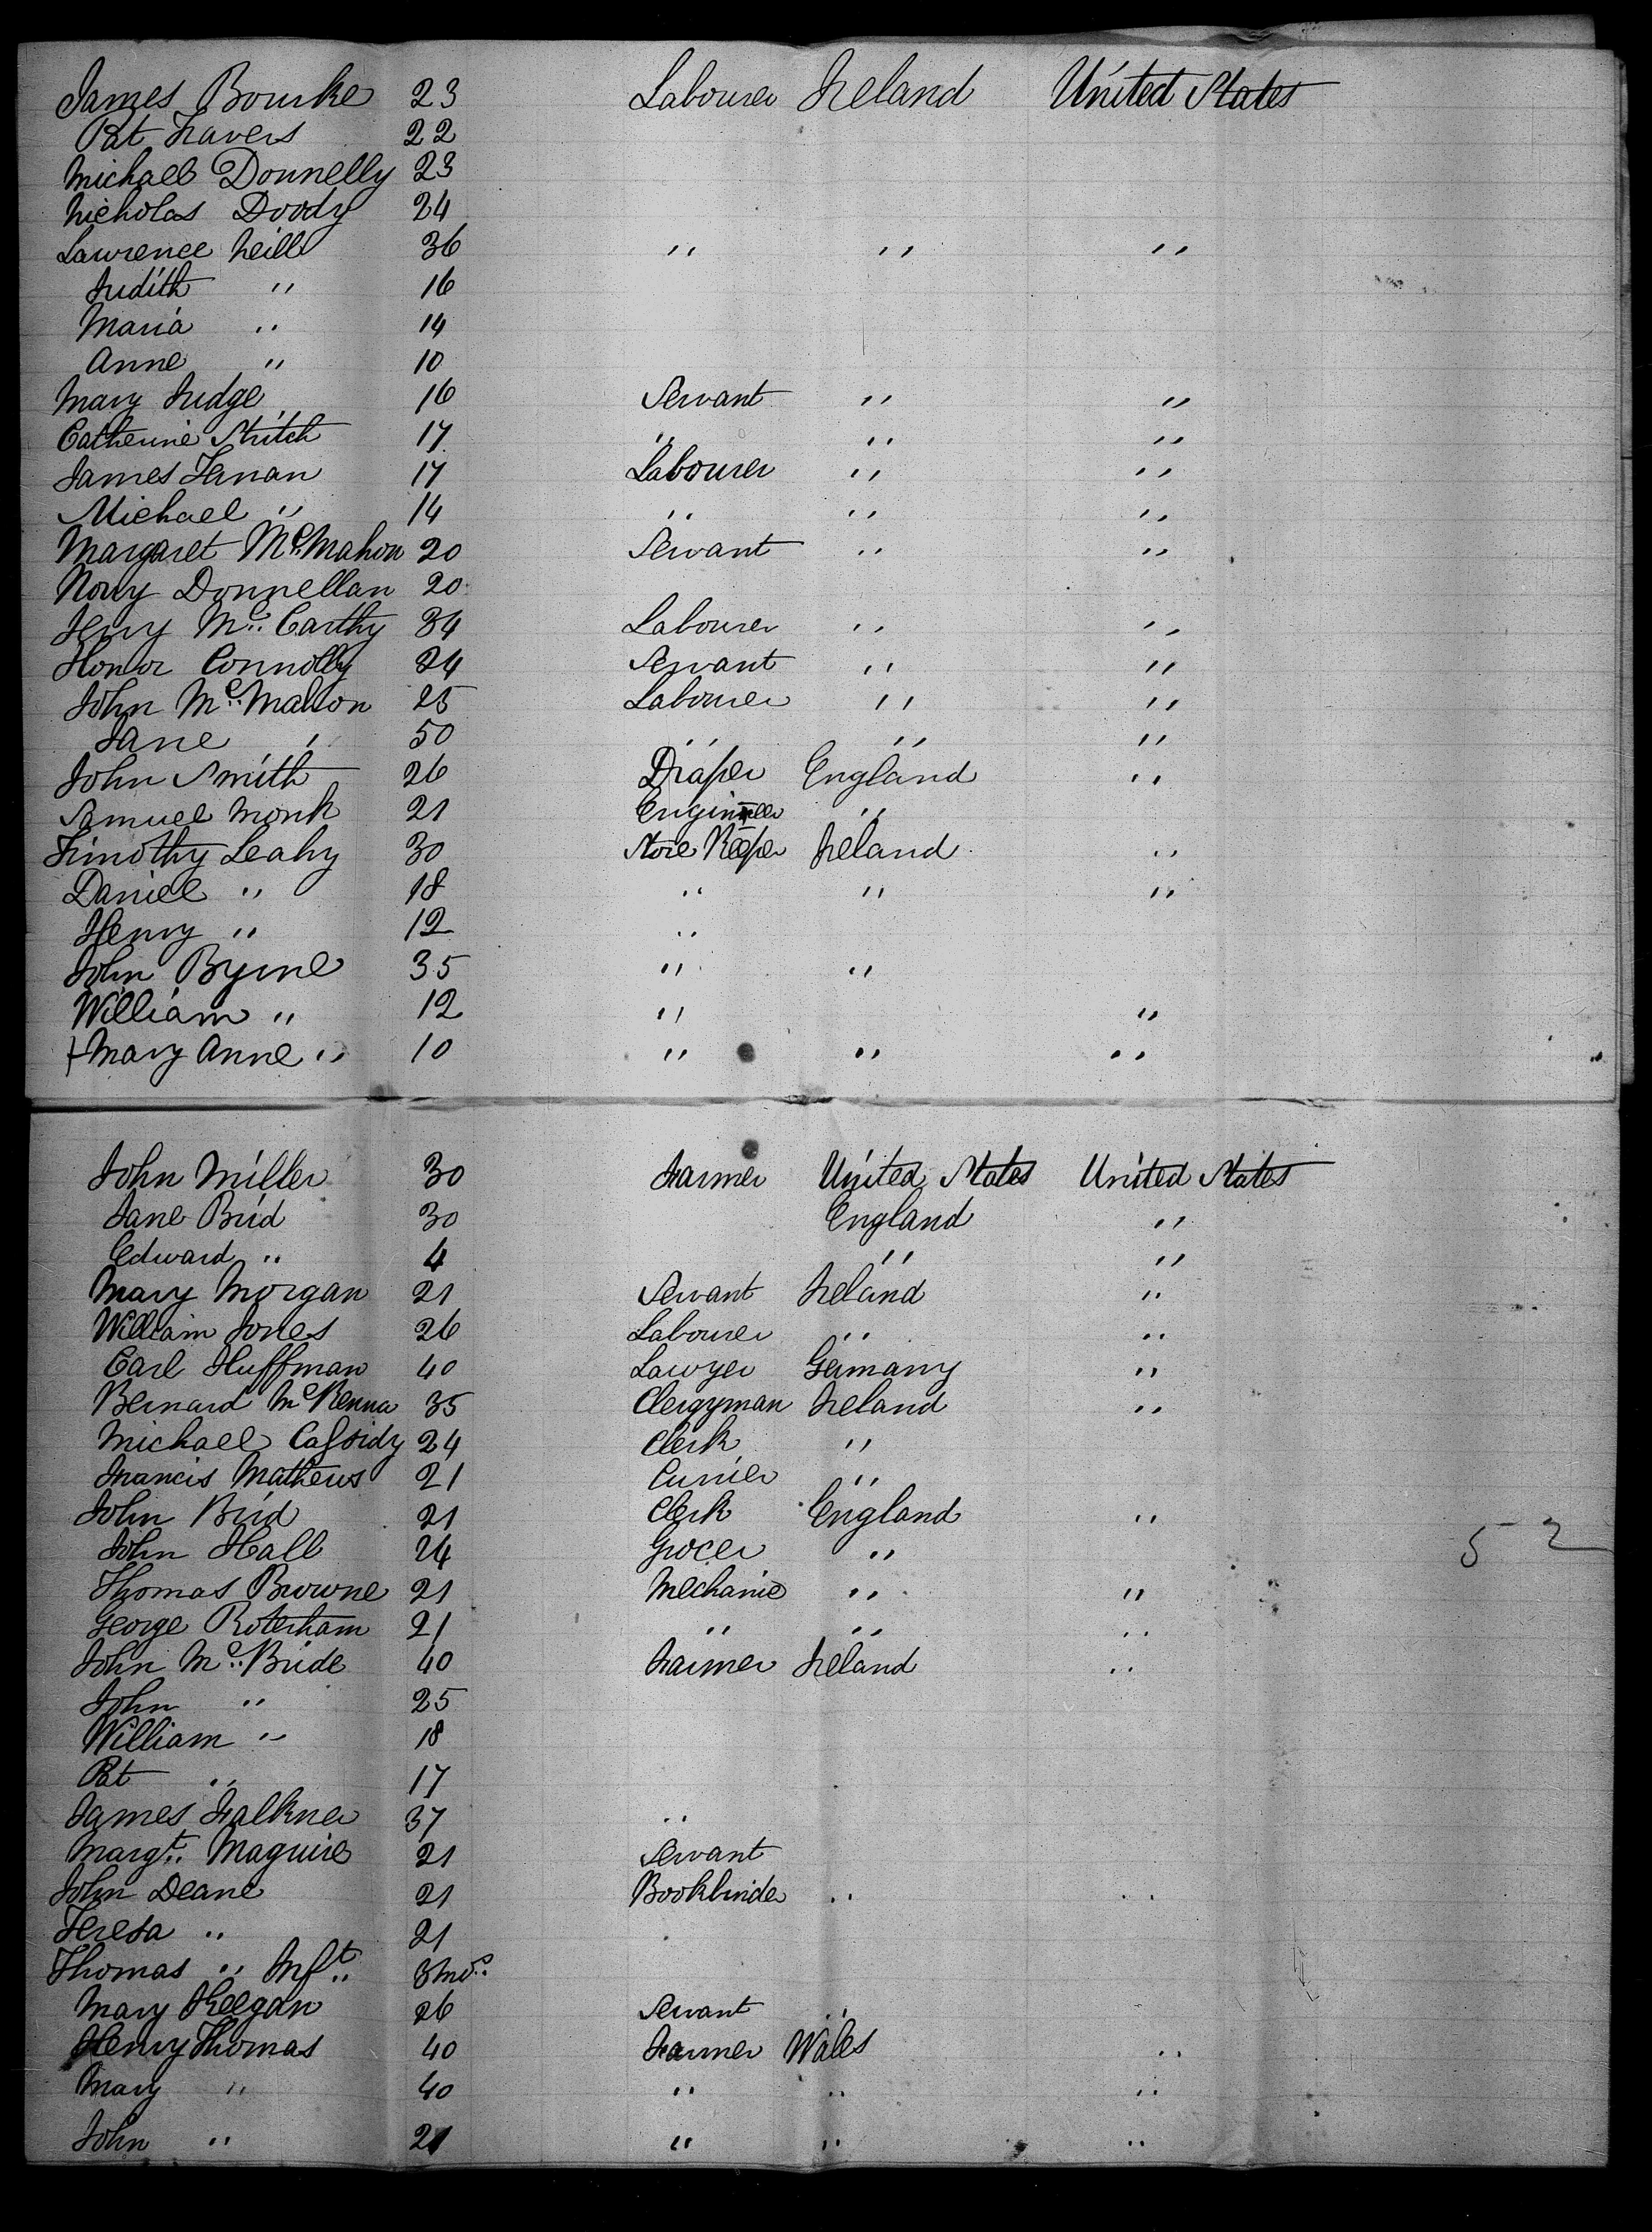 James Bourke 23 Labourer Ireland United States
Pat Travers 22
Michael Donnelly 23
Nicholas Doody 24
Lawrence Neill 36 " " "
Judith " 16
Maria " 14
Anne " 10
Mary Judge 16 Servant " "
Catherine Stritch 17 " " "
James Fanan 17 Labourer " "
Michael " 14 " " "
Margaret McMahon 20 Servant " "
Nony Donnellan 20
Jerry Mc Carthy 34 Labourer " "
Honor Connolly 24 Servant " "
John McMahon 25 Labourer " "
Jane " 50 " " "
John Smith 26 Draper England "
Samuel Monk 21 Engineer "
Timothy Leahy 30 Store Keeper Ireland "
Daniel " 18 " " "
Henry " 12 "
John Byrne 35 " "
William " 12 " "
Mary Anne " 10 " " "
John Miller 30 Farmer United States United States
Jane Bird 30 England "
Edward " 4 " "
Mary Morgan 21 Servant Ireland "
William Jones 26 Labourer " "
Carl Huffman 40 Lawyer Germany "
Bernard McKenna 35 Clergyman Ireland "
Michael Cassidy 24 Clerk "
Francis Mathews 21 Currier "
John Bird 21 Clerk England "
John Hall 24 Grocer "
52
Thomas Browne 21 Mechanic " "
George Roterham 21 " " "
John Mc Bride 40 Farmer Ireland "
John " 25
William " 18
Pat " 17
James Falkner 37 "
Margt. Maguire 21 Servant
John Deane 21 Bookbinder " "
Teresa " 21
Thomas " Inft. 3 mos.
Mary Keegan 26 Servant "
Henry Thomas 40 Farmer Wales "
Mary " 40 " " "
John " 21 " " "